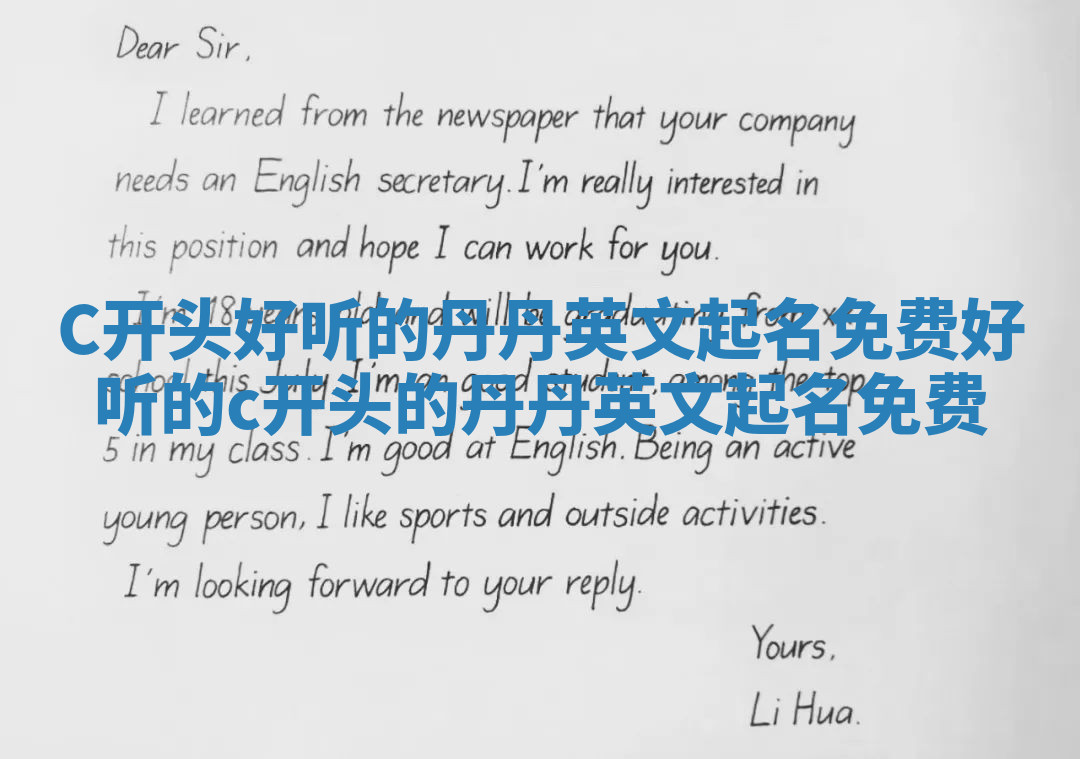 Dear Sir,
I learned from the newspaper that your company
needs an English secretary. I'm really interested in
this position and hope I can work for you.
I'm 18 years old and will be graduating from
C开头好听的丹丹英文起名免费好
school this July. I'm an good student, among the top
听的c开头的丹丹英文起名免费
5 in my class. I'm good at English. Being an active
young person, I like sports and outside activities.
I'm looking forward to your reply.
Yours,
Li Hua.